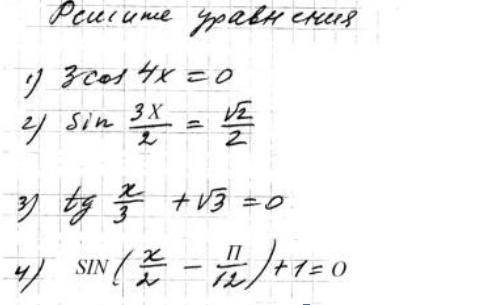 Решите уравнения
1) 3cos 4x = 0
2) sin 3X/2 = √2/2
3) tg x/3 + √3 = 0
4) SIN(x/2 - П/12) + 1 = 0